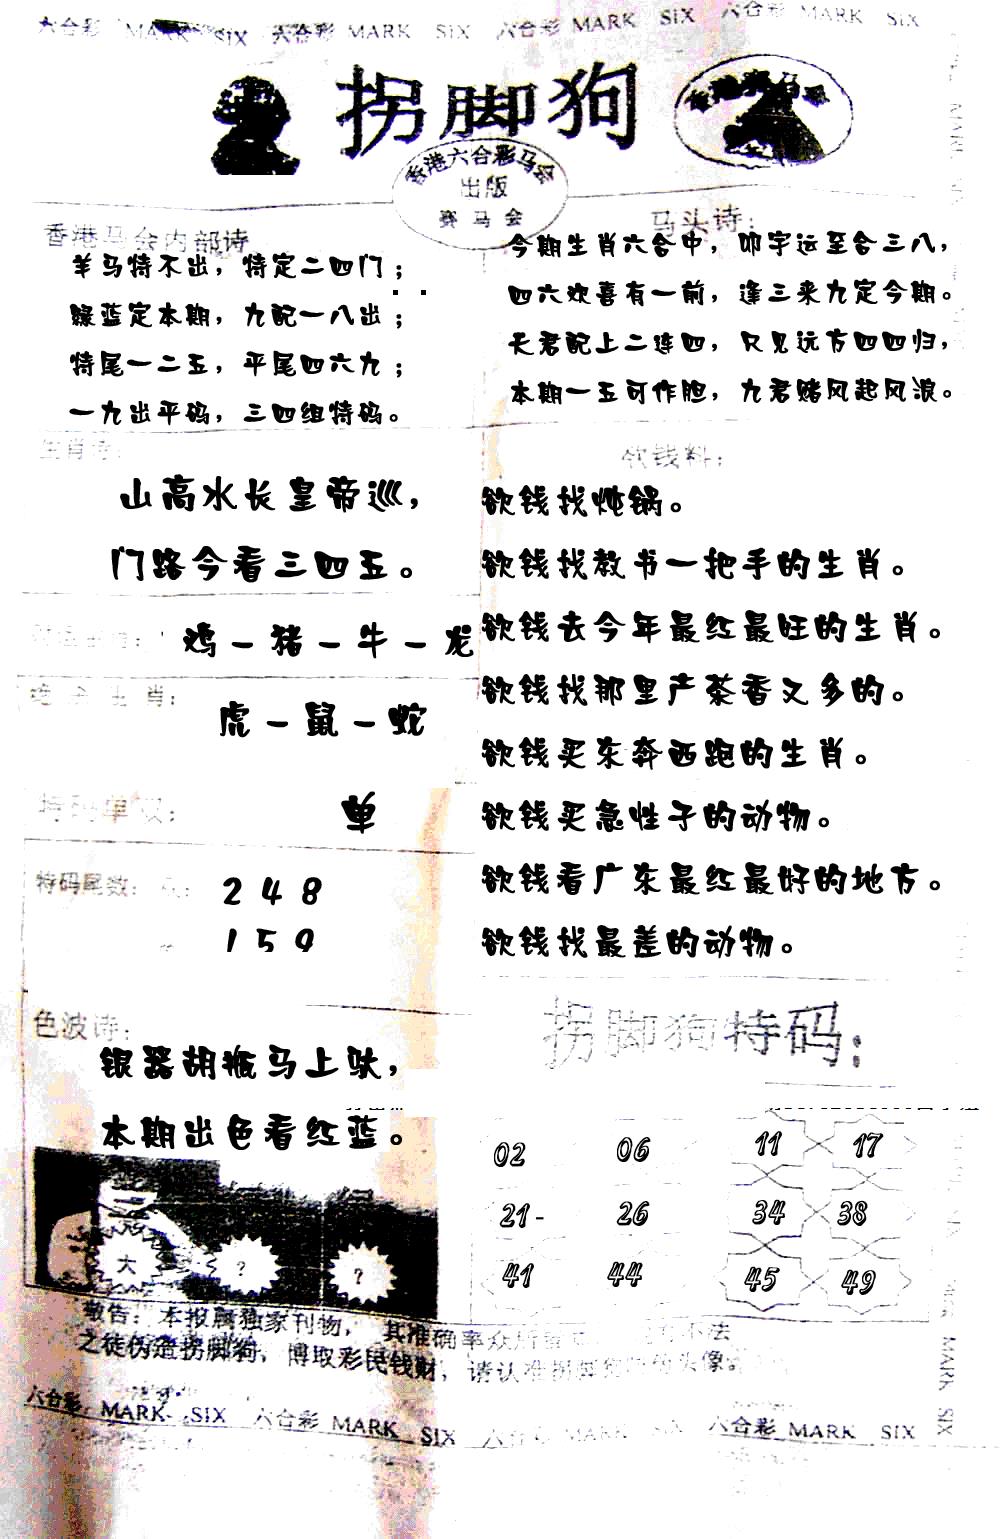 六合彩 MARK SIX 六合彩 MARK SIX 六合彩 MARK SIX 六合彩 MARK SIX
拐脚狗
香港六合彩马会
出版
赛马会
香港马会内部诗
羊马特不出，特定二四门；
绿蓝定本期，九配一八出；
特尾一二五，平尾四六九；
一九出平码，三四组特码。
马头诗：
今期生肖六合中，叩宇远至合三八，
四六欢喜有一前，逢三来九定今期。
天君配上二连四，只见远方四四归，
本期一五可作胆，九君赌风起风浪。
生肖诗：
山高水长皇帝巡，
门路今看三四五。
鸡－猪－牛－龙
生肖：
虎－鼠－蛇
特码单双：
单
特码尾数：
2 4 8
1 5 9
色波诗：
银器胡瓶马上驮，
本期出色看红蓝。
大
?
?
欲钱料：
欲钱找炖锅。
欲钱找教书一把手的生肖。
欲钱去今年最红最旺的生肖。
欲钱找那里产茶香又多的。
欲钱买东奔西跑的生肖。
欲钱买急性子的动物。
欲钱看广东最红最好的地方。
欲钱找最差的动物。
拐脚狗特码：
02 06 11 17
21- 26 34 38
41 44 45 49
敬告：本报属独家刊物，其准确率众所 不法
之徒伪造拐脚狗，博取彩民钱财，请认准拐脚 头像。
六合彩 MARK SIX 六合彩 MARK SIX 六合彩 MARK SIX 六合彩 MARK SIX
MARK SIX